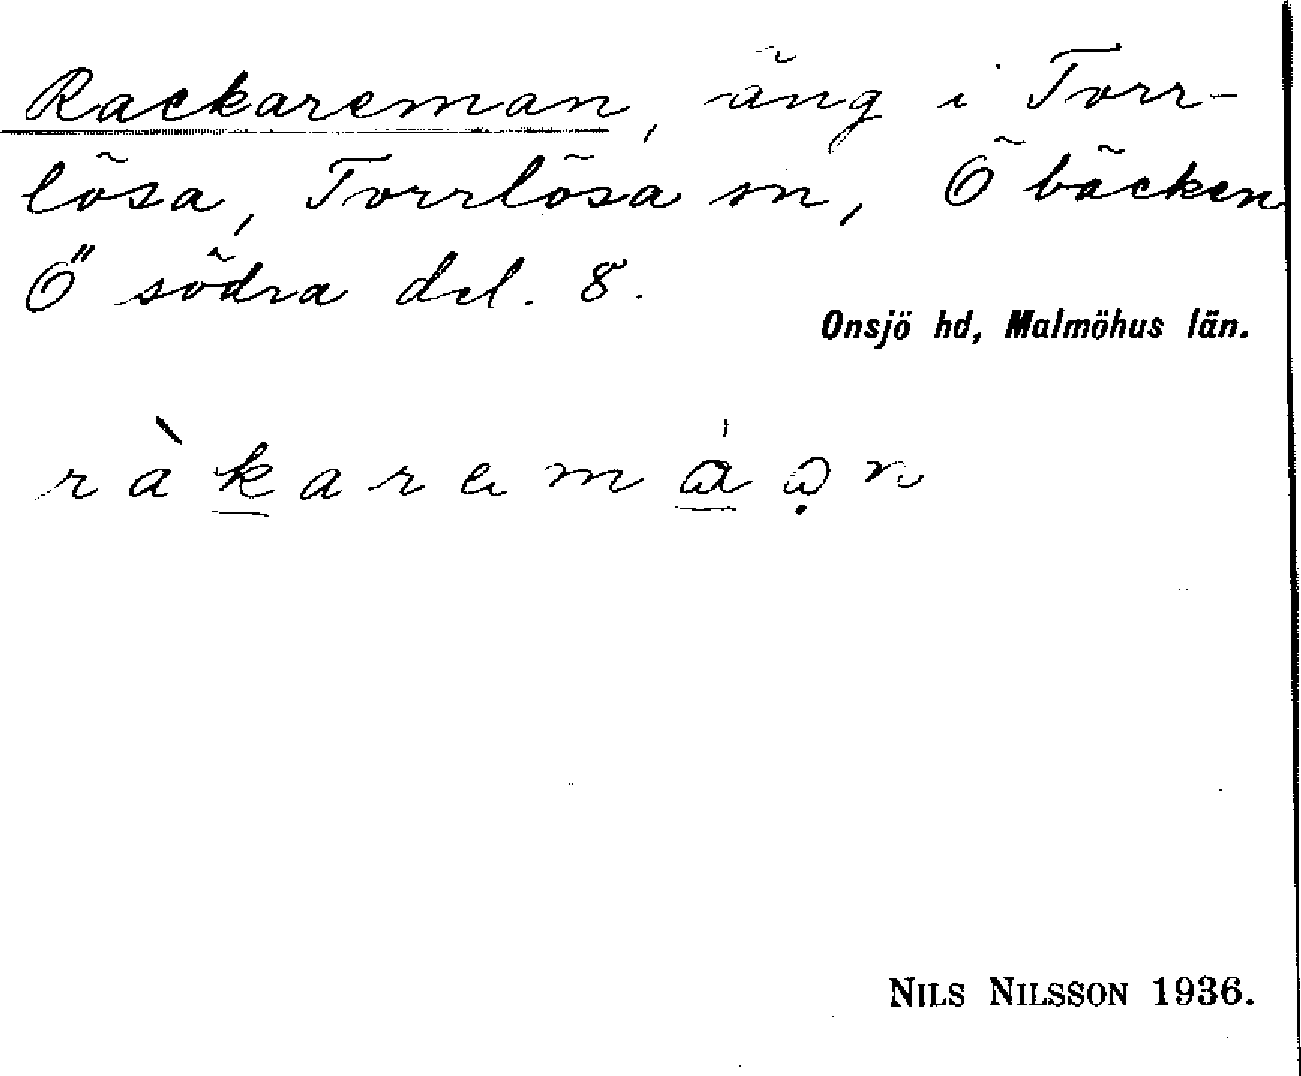 Rackareman, äng i Torr-
lösa, Torrlösa sn, Ö bäcken
Ö södra del. 8.
Onsjö hd, Malmöhus län.
ràkaremáọn
NILS NILSSON 1936.